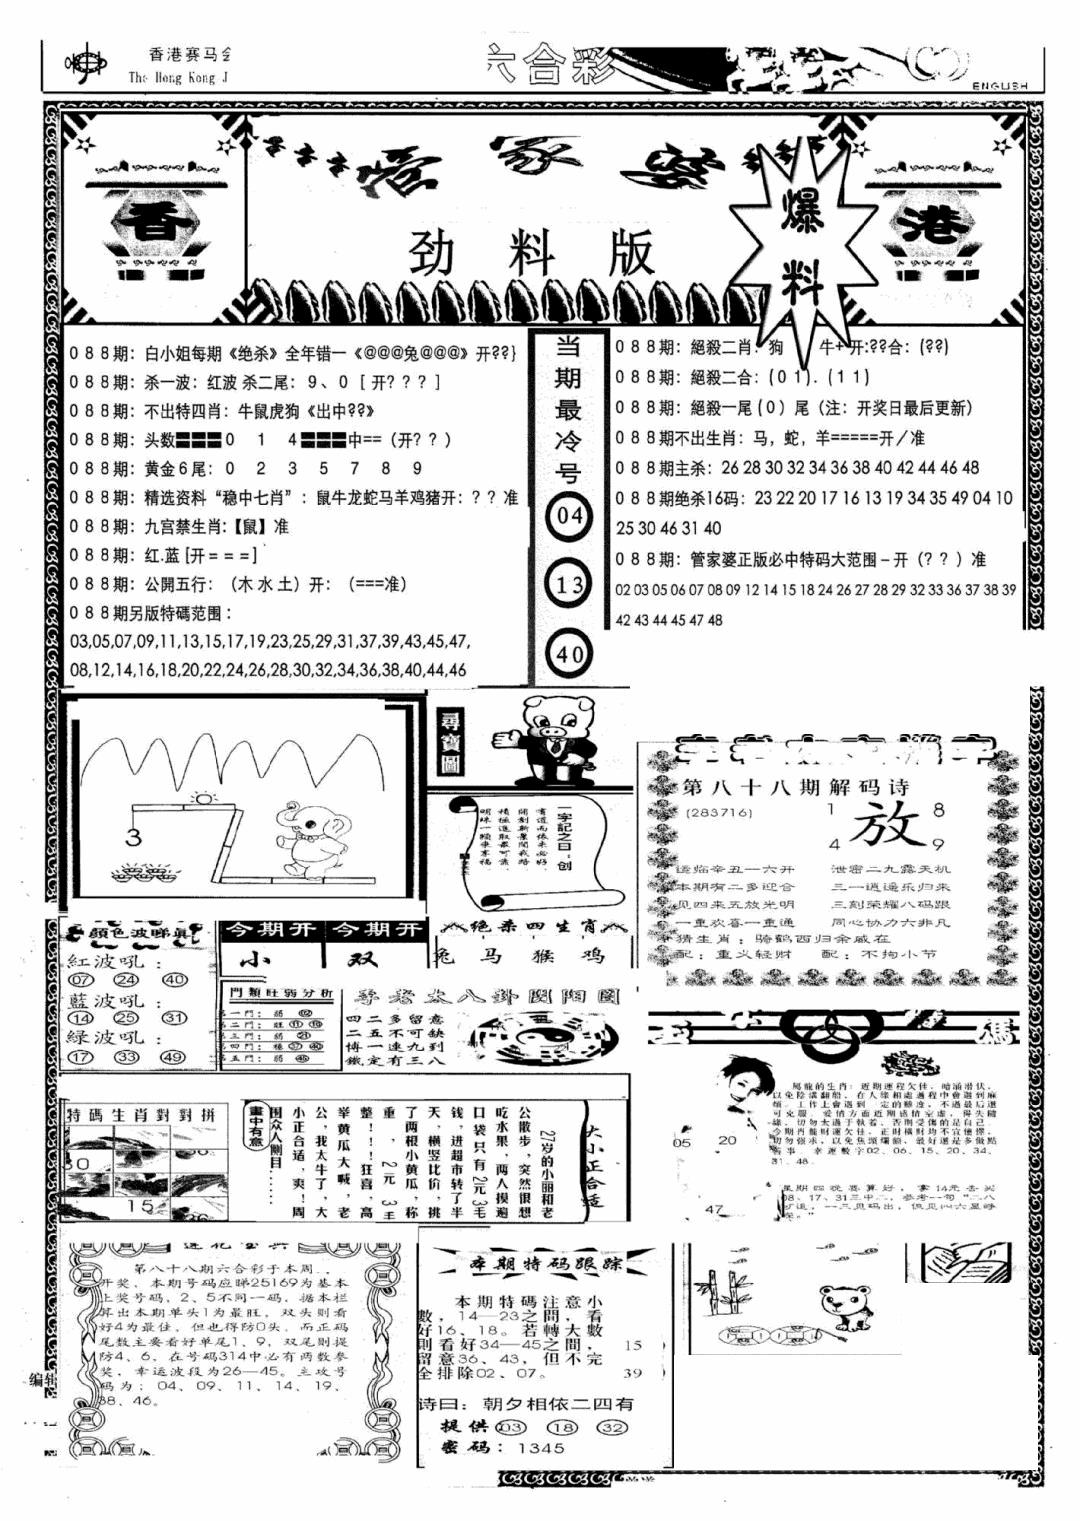 香港赛马会
The Hong Kong J
六合彩
ENGLISH
香
管家婆
劲料版
爆料
港
088期：白小姐每期《绝杀》全年错一《@@@兔@@@》开??}
088期：杀一波：红波 杀二尾：9、0［开???］
088期：不出特四肖：牛鼠虎狗《出中??》
088期：头数〓〓〓0 1 4〓〓〓中==（开??）
088期：黄金6尾：0 2 3 5 7 8 9
088期：精选资料“稳中七肖”：鼠牛龙蛇马羊鸡猪开：??准
088期：九宫禁生肖:【鼠】准
088期：红.蓝[开===]
088期：公開五行：（木水土）开：（===准）
088期另版特碼范围：
03,05,07,09,11,13,15,17,19,23,25,29,31,37,39,43,45,47,
08,12,14,16,18,20,22,24,26,28,30,32,34,36,38,40,44,46
当期最冷号
04
13
40
088期：絕殺二肖：狗 牛+开:??合：(??)
088期：絕殺二合：(01).(11)
088期：絕殺一尾(0)尾（注：开奖日最后更新）
088期不出生肖：马，蛇，羊=====开／准
088期主杀：26 28 30 32 34 36 38 40 42 44 46 48
088期绝杀16码：23 22 20 17 16 13 19 34 35 49 04 10
25 30 46 31 40
088期：管家婆正版必中特码大范围－开（??）准
02 03 05 06 07 08 09 12 14 15 18 24 26 27 28 29 32 33 36 37 38 39
42 43 44 45 47 48
3
尋寶圖
一字記之曰：创
第八十八期解码诗
(283716)
1 8
放
4 9
运临辛丑一六开 泄密二九露天机
本期有二多迎合 三一逍遥乐归来
见四来五放光明 三刻荣耀八码跟
一重欢喜一重通 同心协力六非凡
猜生肖：骑鹤西归余威在
配：重义轻财 配：不拘小节
顔色波啼真
紅波吼：
07 24 40
藍波吼：
14 25 31
绿波吼：
17 33 49
今期开 今期开
小 双
绝杀四生肖
兔 马 猴 鸡
門類旺弱分析
四二多留意
二五不可缺
博一連九到
鐵定有三八
特碼生肖對對拼
30
15
大小正合适
27岁的小丽和老
公散步，突然很想
吃水果，两人摸遍
口袋只有2元3毛
钱，进超市转了半
天，横竖比价，挑
了两根小黄瓜，称
重，2元3毛
整！！！狂喜，高
举黄瓜大喊，老
公，我太牛了，大
小正合适，爽！周
围众人侧目……
畫中有意
馬龍的生肖：近期運程欠佳，暗涌潜伏，
以免陰溝翻船，在人緣相處過程中會遇到麻
煩。工作上會遇到一定的難度，不過最后還
可克服。愛情方面近期感情空虚，得失隨
緣，切勿太過于執着，否則受傷的是自己。
今期肖龍財運欠佳，正財横財均不宜憧憬，
切勿强求，以免焦頭爛額，最好還是多做點
善事。幸運數字02、06、15、20、34、
31、48。
05 20
47
星期四晚要算好，拿14元去买
08、17、31三中二，参考一句“二八
莲花宝典
第八十八期六合彩于本周..
开奖，本期号码应睇25169为基本
上奖号码，2、5不同一码，据本栏
算出本期单头1为最旺，双头则看
好4为最佳，但也得防0头，而正码
尾数主要看好单尾1、9，双尾则提
防4、6，在号码314中必有两数参
奖，幸运波段为26—45。主攻号
码为：04、09、11、14、19、
38、46。
编辑
本期特码跟踪
本期特碼注意小
數，14—23之間，看
好16、18。若轉大數
則看好34—45之間，
留意36、43，但不完
全排除02、07。
15
39
诗曰：朝夕相依二四有
提供 03 18 32
密码：1345